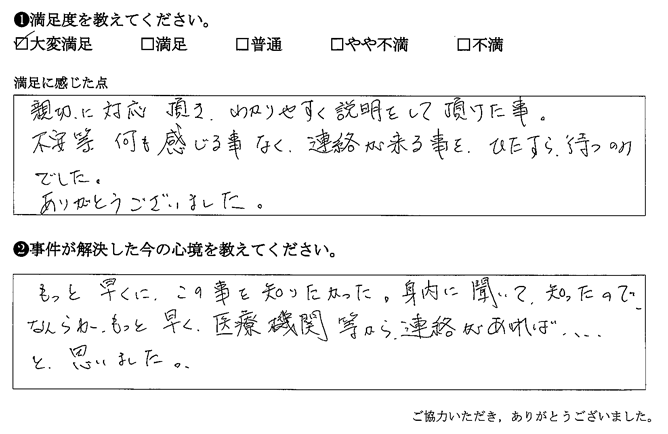 ❶満足度を教えてください。
☑大変満足 □満足 □普通 □やや不満 □不満
満足に感じた点
親切に対応頂き、わかりやすく説明をして頂けた事。
不安等何も感じる事なく、連絡が来る事を、ひたすら、待つのみ
でした。
ありがとうございました。
❷事件が解決した今の心境を教えてください。
もっと早くに、この事を知りたかった。身内に聞いて、知ったので、
なんらか、もっと早く、医療機関等から、連絡があれば、、、、
と、思いました。
ご協力いただき，ありがとうございました。